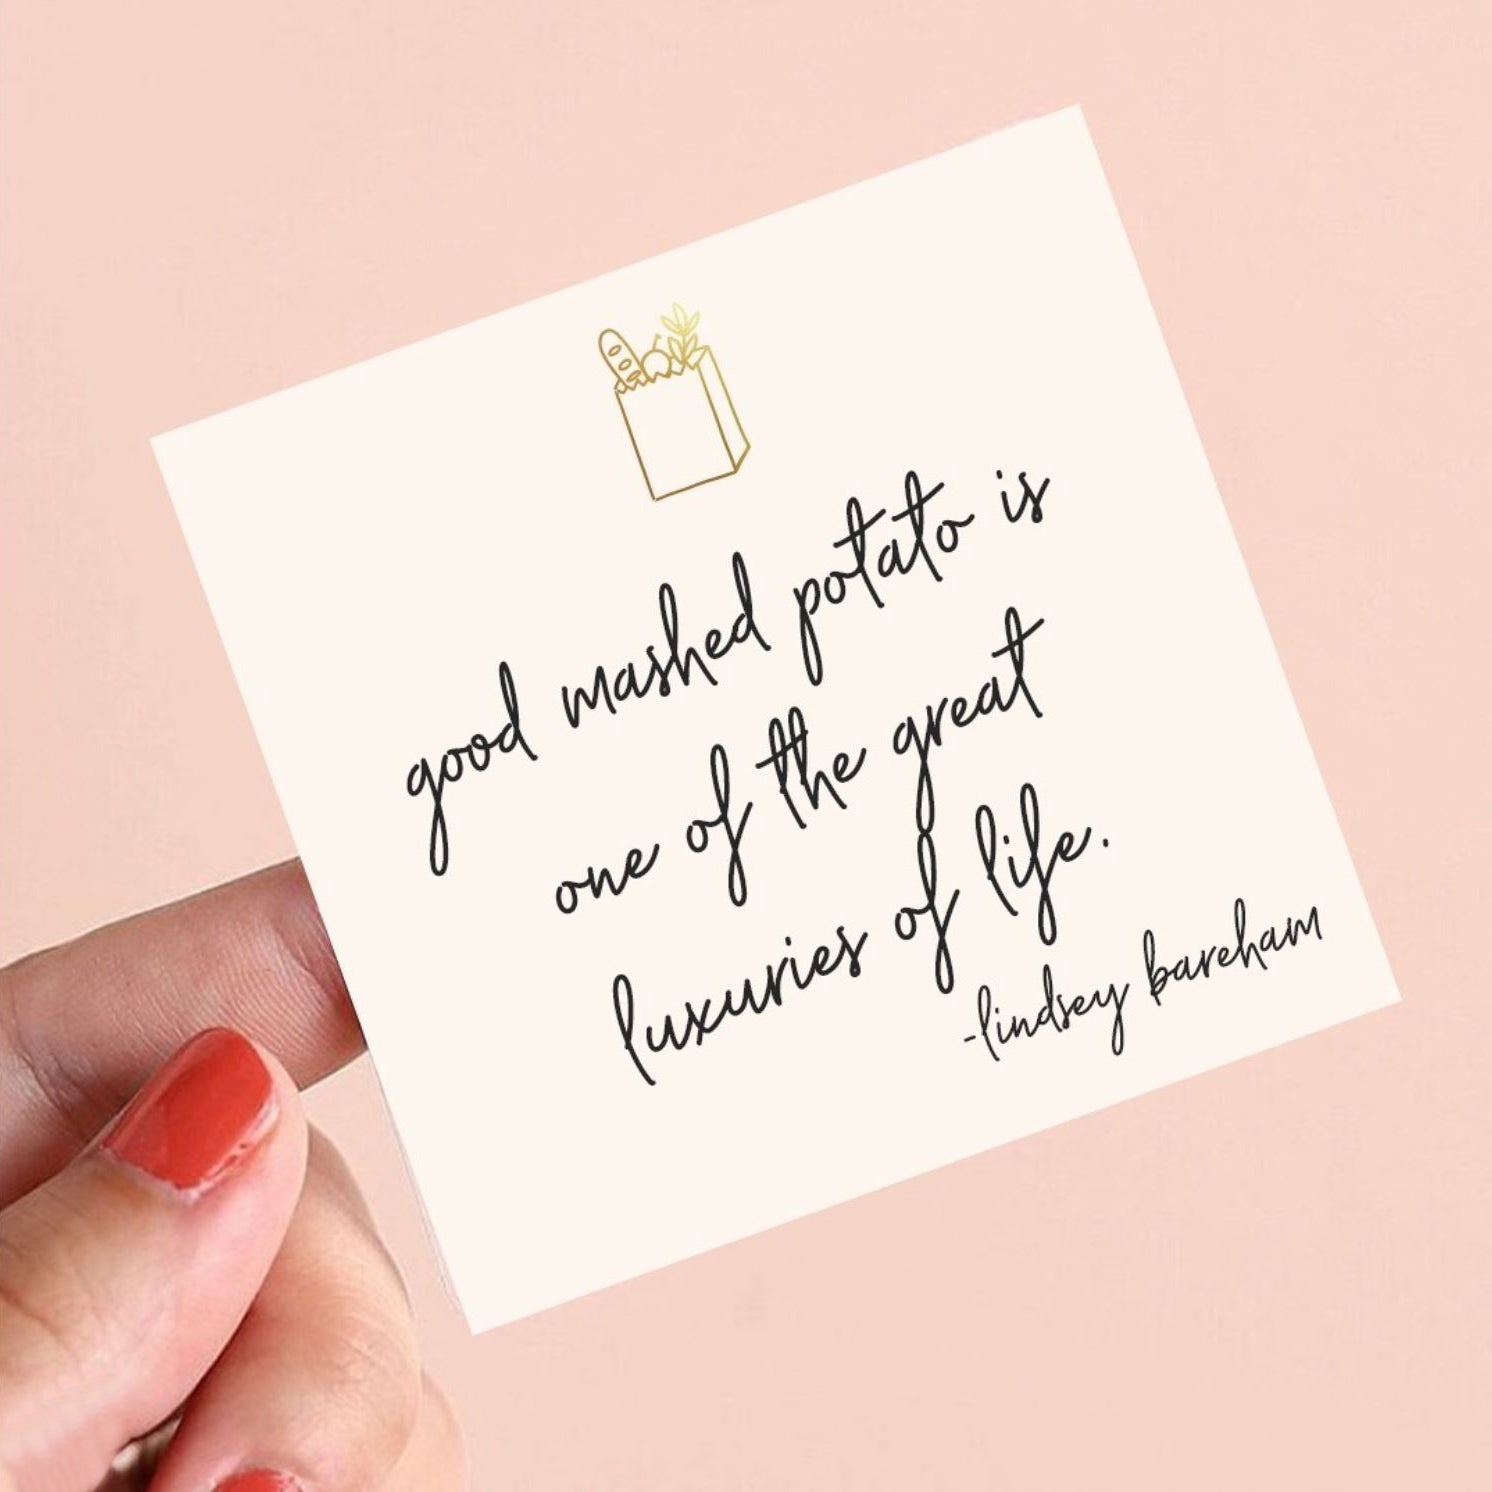 good mashed potato is
one of the great
luxuries of life.
-lindsey bareham